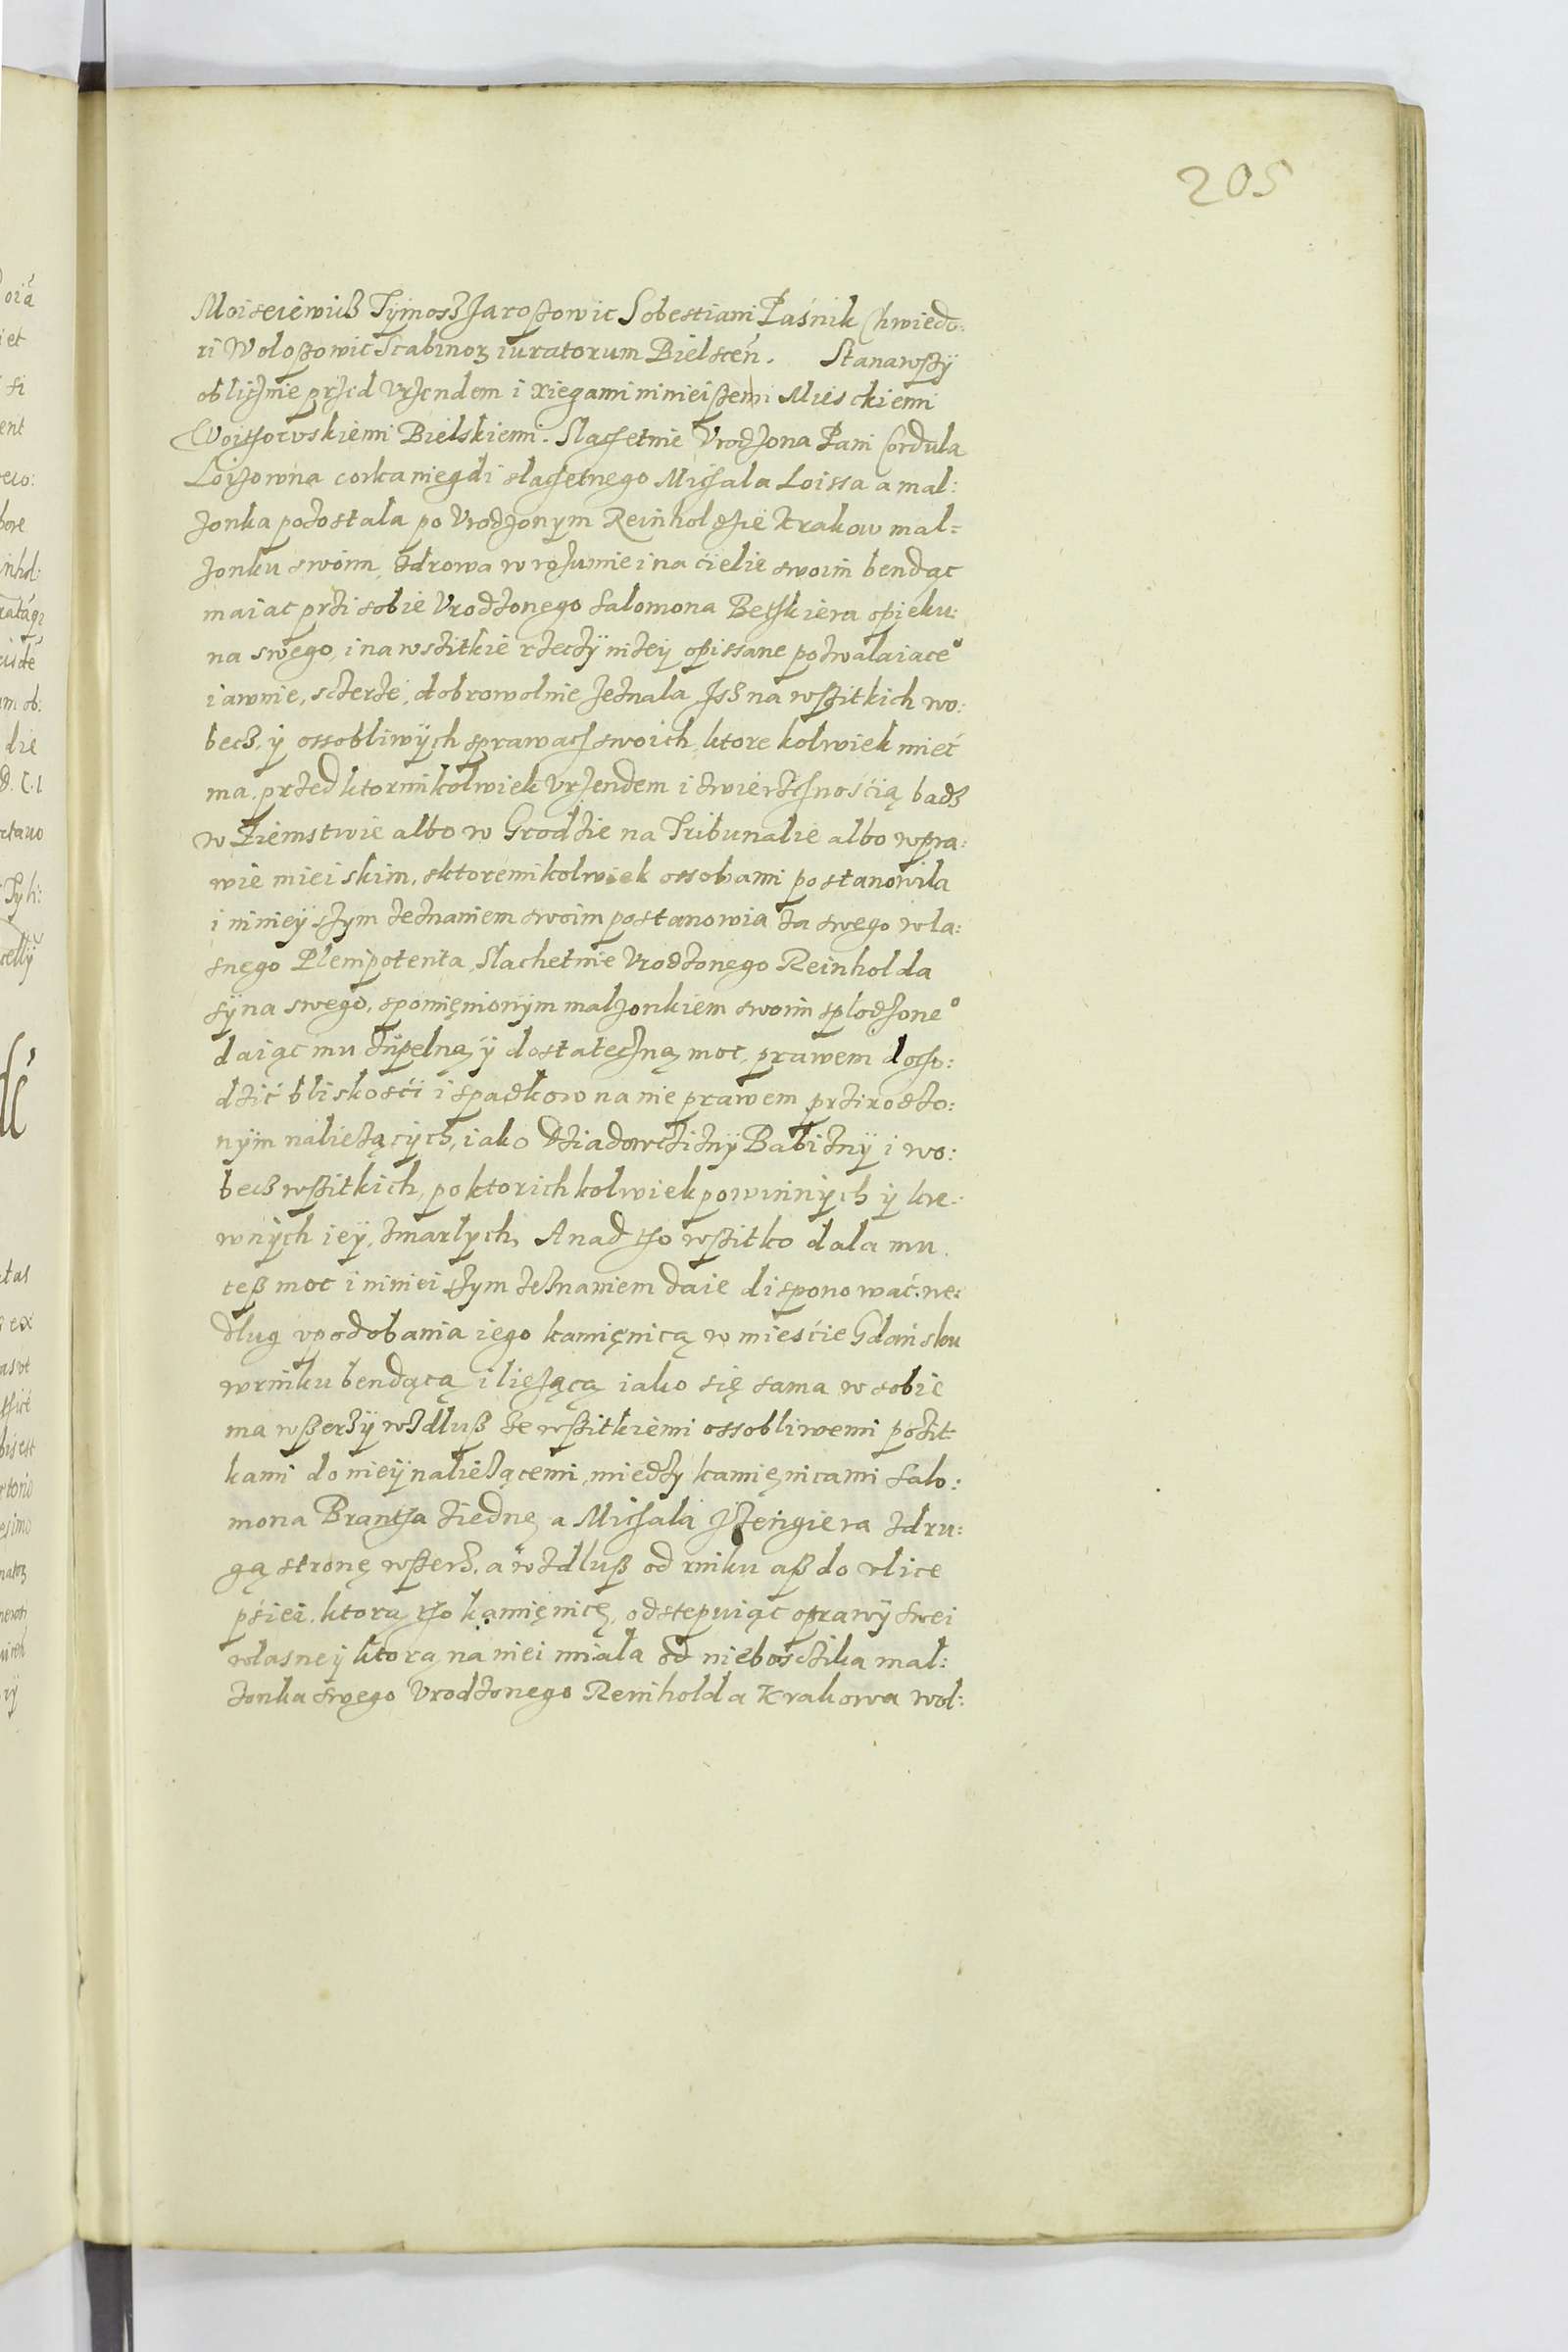 205
Moiseiewicz Tÿmosz Jaroszowic Sobestiani Paśnik Chwiedo:
ri Woloszowic Scabinoꝝ iuratorum Bielsceń. Stanawszÿ
oblicznie przed Vrzendem i xiegami ninieiszemi Mieiskiemi
Woitowskiemi Bielskiemi. Slachetnie Vrodzona Pani Cordula
Loizowna corka niegdi slachetnego Michala Loissa a mal:
zonka pozostala po Vrodzonym Reinholdzie Krakow mal=
zonku swoim, zdrowa w rozumie i na ciele swoim bendąc
maiac przi sobie Vrodzonego Salomona Betskiera opieku:
na swego, i na wszitkie rzeczÿ nizeÿ opissane pozwalaiace°
iawnie, sczerze, dobrowolnie zeznala Jsz na wszitkich wo:
becz, ÿ ossobliwÿch sprawach swoich, ktore kolwiek mieć
ma, przed ktorimkolwiek Vrzendem i zwierzchnością badz
w Ziemstwie albo w Grodzie na Tribunalie albo w pra:
wie mieiskim, s ktoremikolwiek ossobami postanowila
i ninieÿszym zeznaniem swoim postanowia za swego wla:
snego Plenipotenta, Slachetnie Vrodzonego Reinholda
sÿna swego, spomięnionÿm malzonkiem swoim splodzone°
daiąc mu zupelną ÿ dostateczną moc, prawem docho:
dzić bliskości i spadkow na nie prawem przirodzo:
nÿm nalieząćÿch, iako Dziadowcziznÿ Babiznÿ i wo:
becz wszitkich, po ktorichkolwiek powinnÿch ÿ kre:
wnÿch ieÿ, zmarlych, A nad tho wszitko dala mu
tesz moc i ninieiszym zeznaniem daie disponować we:
dlug vpodobania iego kamięnicą w mieście Gdańsku
w rinku bendącą i liezącą iako się sama w sobie
ma wszerzÿ wzdlusz ze wszitkiemi ossobliwemi pozit
kami do nieÿ naliezącemi, miedzy kamięnicami Salo:
mona Brantha ziednę a Michala Jzengiera zdru:
gą stronę wszerz, a wzdlusz od rinku asz do vlice
psiei, ktorą tho kamięnicę, odstepuiąc oprawÿ swei
wlasneÿ ktorą na niei miala od nieboscźika mal:
zonka swego Vrodzonego Reinholda Krakowa wol: